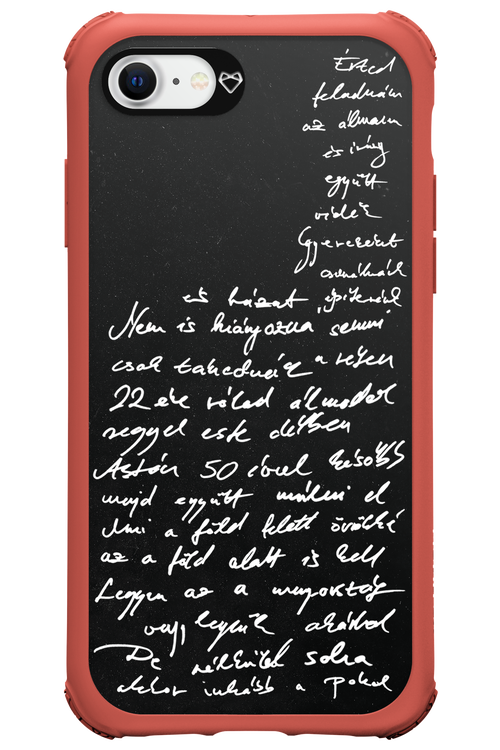 Érted
feladnám
az álmom
és így
együtt
Gyerekeket
csinálnánk
és házat építenénk
Nem is hiányozna semmi
csak takednáz a réten
22 éve rólad álmodok
reggel este délben
Aztán 50 évvel később
majd együtt múlni el
Ami a föld felett örökké
az a föld alatt is kell
Legyen az a mennyország
vagy legyünk akárhol
De nélküled soha
akkor inkább a Pokol